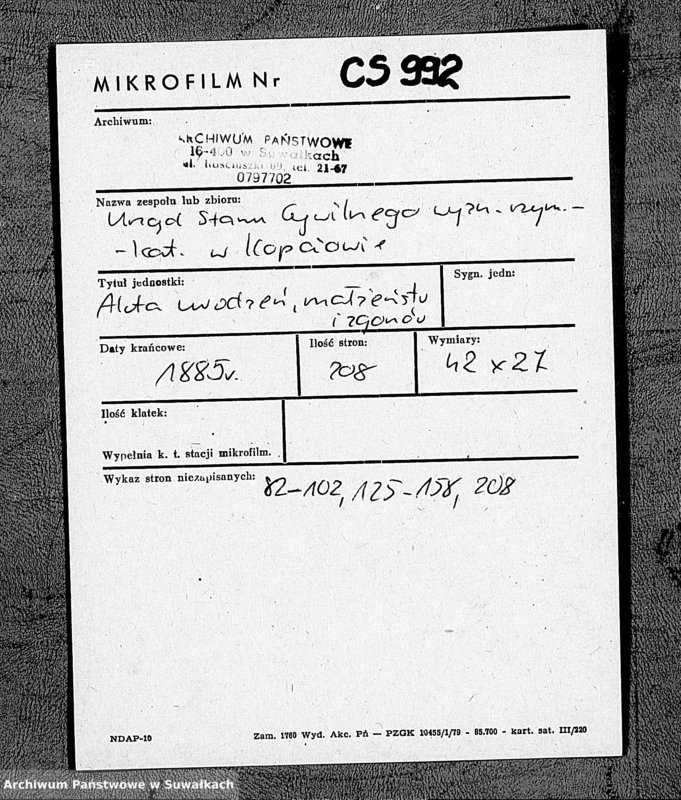 MIKROFILM Nr CS 992
Archiwum:
ARCHIWUM PAŃSTWOWE
16-400 w Suwałkach
ul. Kościuszki 69, tel. 21-67
0797702
Nazwa zespołu lub zbioru:
Urząd Stanu Cywilnego wyzn. rzym.-
-kat. w Kopciowie
Tytuł jednostki:
Akta urodzeń, małżeństw
i zgonów
Sygn. jedn:
Daty krańcowe:
1885r.
Ilość stron:
208
Wymiary:
42 x 27
Ilość klatek:
Wypełnia k. t. stacji mikrofilm.
Wykaz stron niezapisanych:
82-102, 125-158, 208
NDAP-10
Zam. 1760 Wyd. Akc. Pń — PZGK 10455/1/79 - 85.700 - kart. sat. III/220
Archiwum Państwowe w Suwałkach